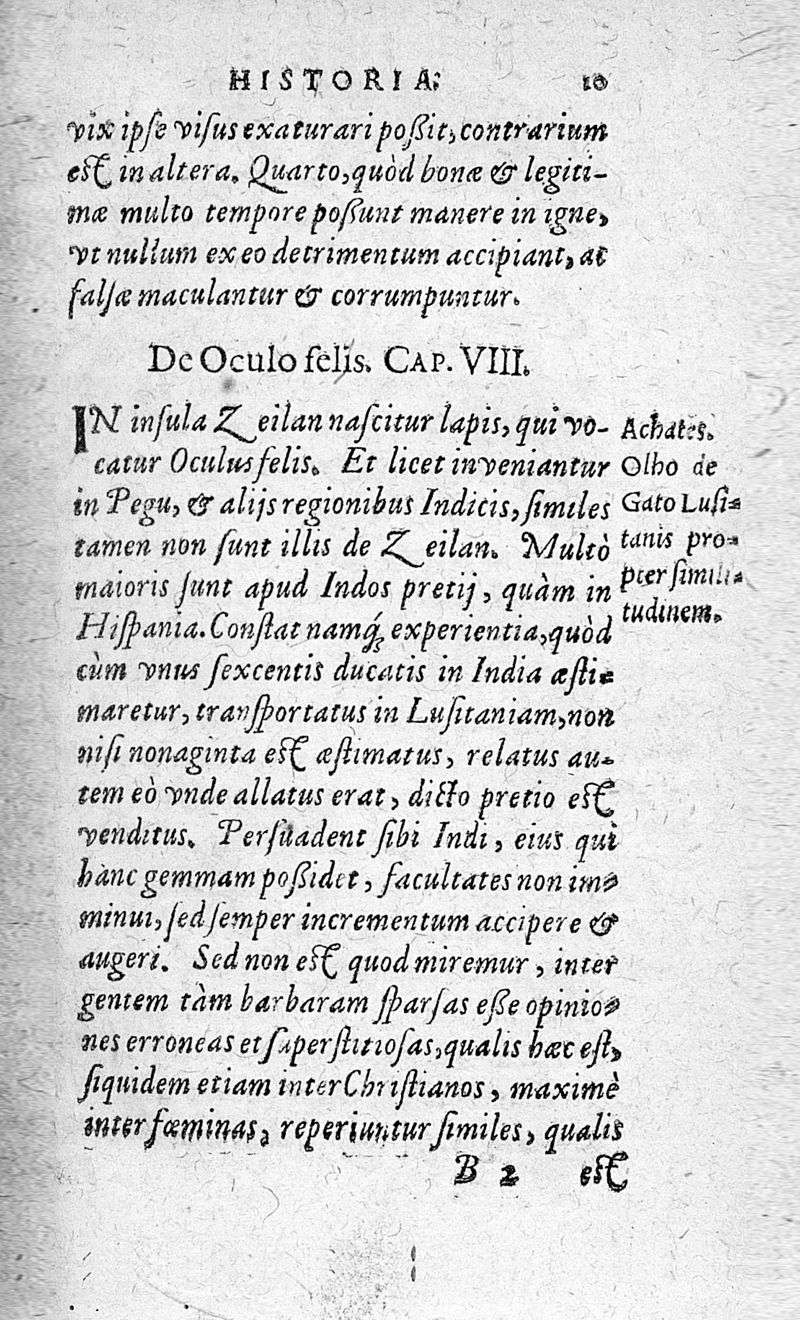 HISTORIA. 10
vix ipse visus exaturari poßit, contrarium
est in altera. Quarto, quòd bonæ & legiti-
mæ multo tempore poßunt manere in igne,
vt nullum ex eo detrimentum accipiant, at
falsæ maculantur & corrumpuntur.
De Oculo felis. CAP. VIII.
IN insula Zeilan nascitur lapis, qui vo-
catur Oculus felis. Et licet inveniantur
in Pegu, & alijs regionibus Indicis, similes
tamen non sunt illis de Zeilan. Multò
maioris sunt apud Indos pretij, quàm in
Hispania. Constat namq́; experientia, quòd
cùm vnus sexcentis ducatis in India æsti-
maretur, transportatus in Lusitaniam, non
nisi nonaginta est æstimatus, relatus au-
tem eò vnde allatus erat, dicto pretio est
venditus. Persuadent sibi Indi, eius qui
hanc gemmam poßidet, facultates non im-
minui, sed semper incrementum accipere &
augeri. Sed non est quod miremur, inter
gentem tàm barbaram sparsas eße opinio-
nes erroneas et superstitiosas, qualis hæc est,
siquidem etiam inter Christianos, maximè
inter fœminas, reperiuntur similes, qualis
B 2 est
Achates.
Olho de
Gato Lusi-
tanis pro-
pter simili-
tudinem.